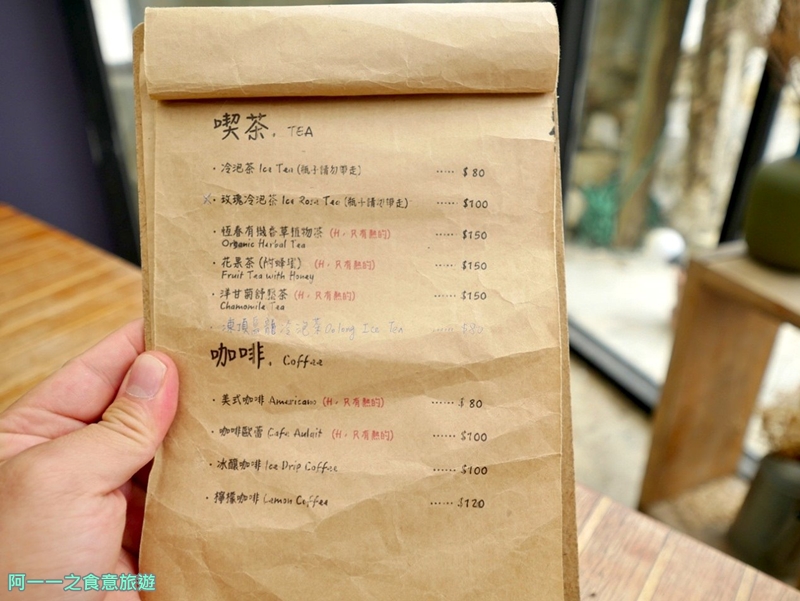 喫茶. TEA
· 冷泡茶 Ice Tea (瓶子請勿帶走) ····· $80
× 玫瑰冷泡茶 Ice Rose Tea (瓶子請勿帶走) ····· $100
· 恆春有機香草植物茶 (H. 只有熱的) ······ $150
Organic Herbal Tea
· 花果茶 (附蜂蜜) (H. 只有熱的) ······ $150
Fruit Tea with Honey
· 洋甘菊舒壓茶 (H. 只有熱的) ······ $150
Chamomile Tea
· 凍頂烏龍冷泡茶 Oolong Ice Tea ····· $80
咖啡. Coffee
· 美式咖啡 Americano (H. 只有熱的) ······ $80
· 咖啡歐蕾 Cafe Aulait (H. 只有熱的) ······ $100
· 冰釀咖啡 Ice Drip Coffee ······ $100
· 檸檬咖啡 Lemon Coffee ······ $120
阿一一之食意旅遊